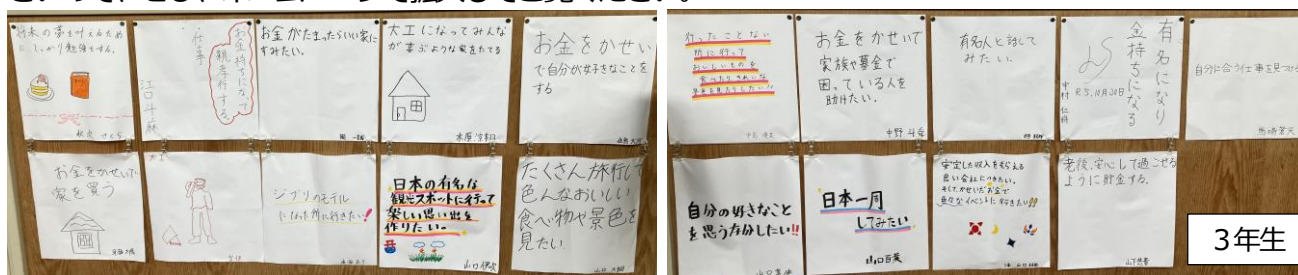 将来の夢を叶えるため
に しっかり勉強をする。
お金持ちになって
親孝行する。
仕事
江口斗麻
お金がたまったらいい家に
すみたい。
大工になってみんな
が喜ぶような家をたてる
お金をかせい
で自分が好きなことを
する
お金をかせいで
家を買う
大工
ジブリのモデル
になった所に行きたい!
日本の有名な
観光スポットに行って
楽しい思い出を
作りたい。
たくさん旅行して
色んなおいしい
食べ物や景色を
見たい
行ったことない
所に行って
おいしいものを
食べたりきれいな
景色を見たりしたい!!
お金をかせいで
家族や募金で
困っている人を
助けたい.
中野
有名人と話して
みたい。
有名になり
金持ちになる
R5.10月20日
中村
自分に合う仕事を見つけ
自分の好きなこと
を思う存分したい!!
日本一周
してみたい
山口
安定した収入をもらえる
良い会社につきたい。
そしてかせいだお金で
色々なイベントに行きたい!!
老後、安心して過ごせる
ように貯金する。
3年生